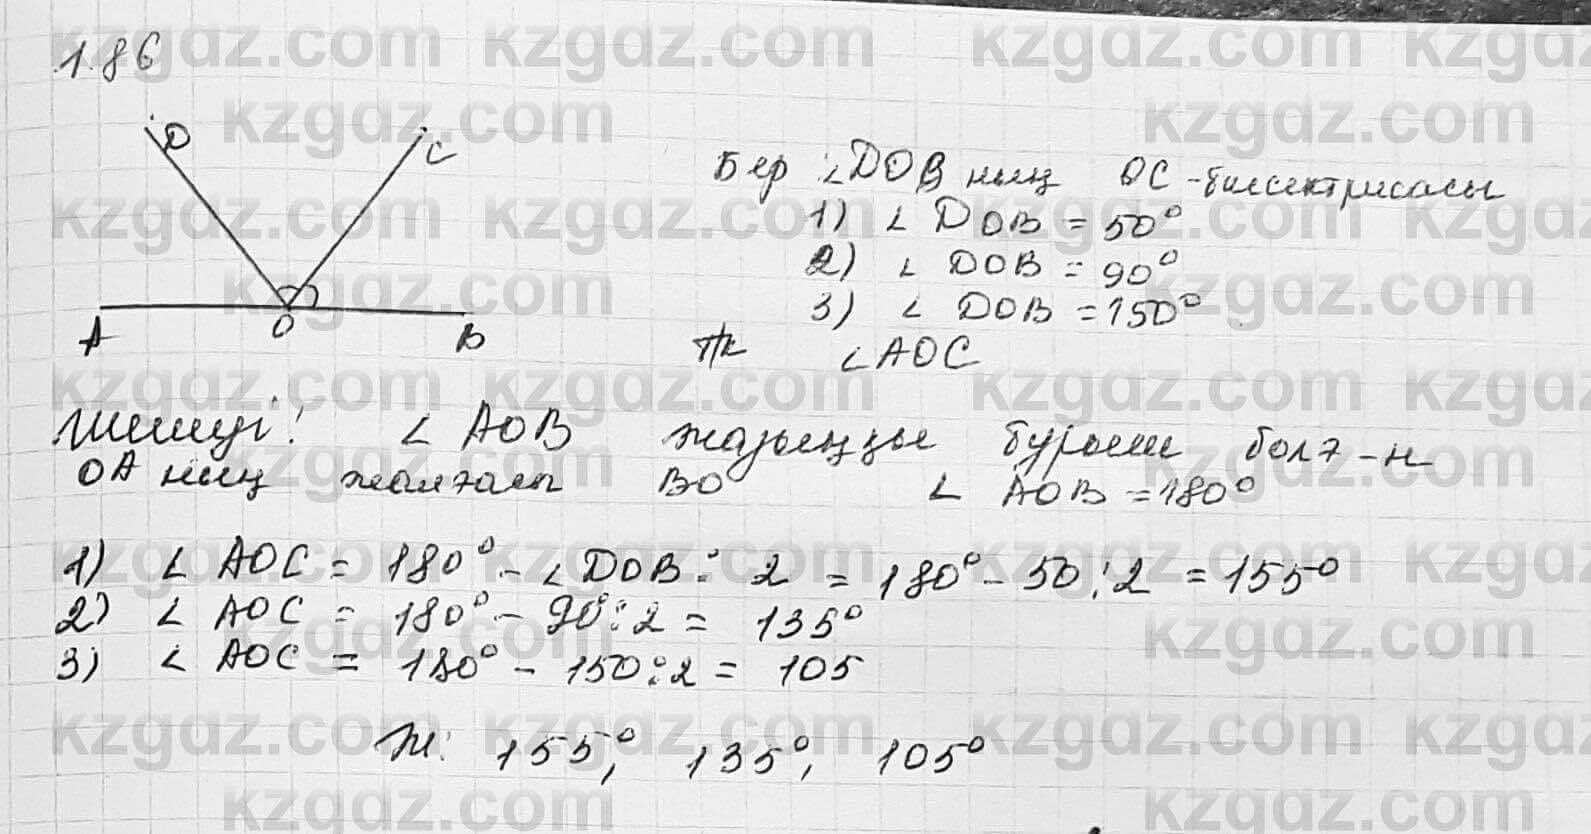 1.86
D
C
A
O
B
Бер: ∠DOB ның OC - биссектрисасы
1) ∠ DOB = 50°
2) ∠ DOB = 90°
3) ∠ DOB = 150°
Тк ∠AOC
Шешуі: ∠ AOB жазыңқы бұрыш болғ-н
OA ның жалғасы BO ∠ AOB = 180°
1) ∠ AOC = 180° - ∠DOB : 2 = 180° - 50 : 2 = 155°
2) ∠ AOC = 180° - 90° : 2 = 135°
3) ∠ AOC = 180° - 150 : 2 = 105
Ж: 155°, 135°, 105°
kzgdz.com